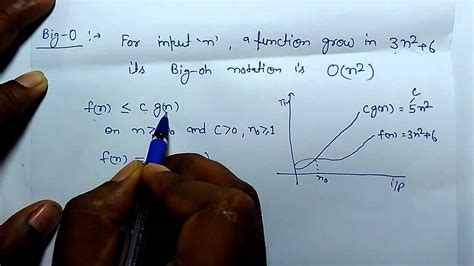 Big-O :→ For input 'n', a function grow in 3n²+6
its Big-oh notation is O(n²)
f(n) ≤ c g(n)
on n> and c>0, n₀≥1
f(n) =
c
c g(n) = 5n²
f(n) = 3n²+6
n₀
i/p